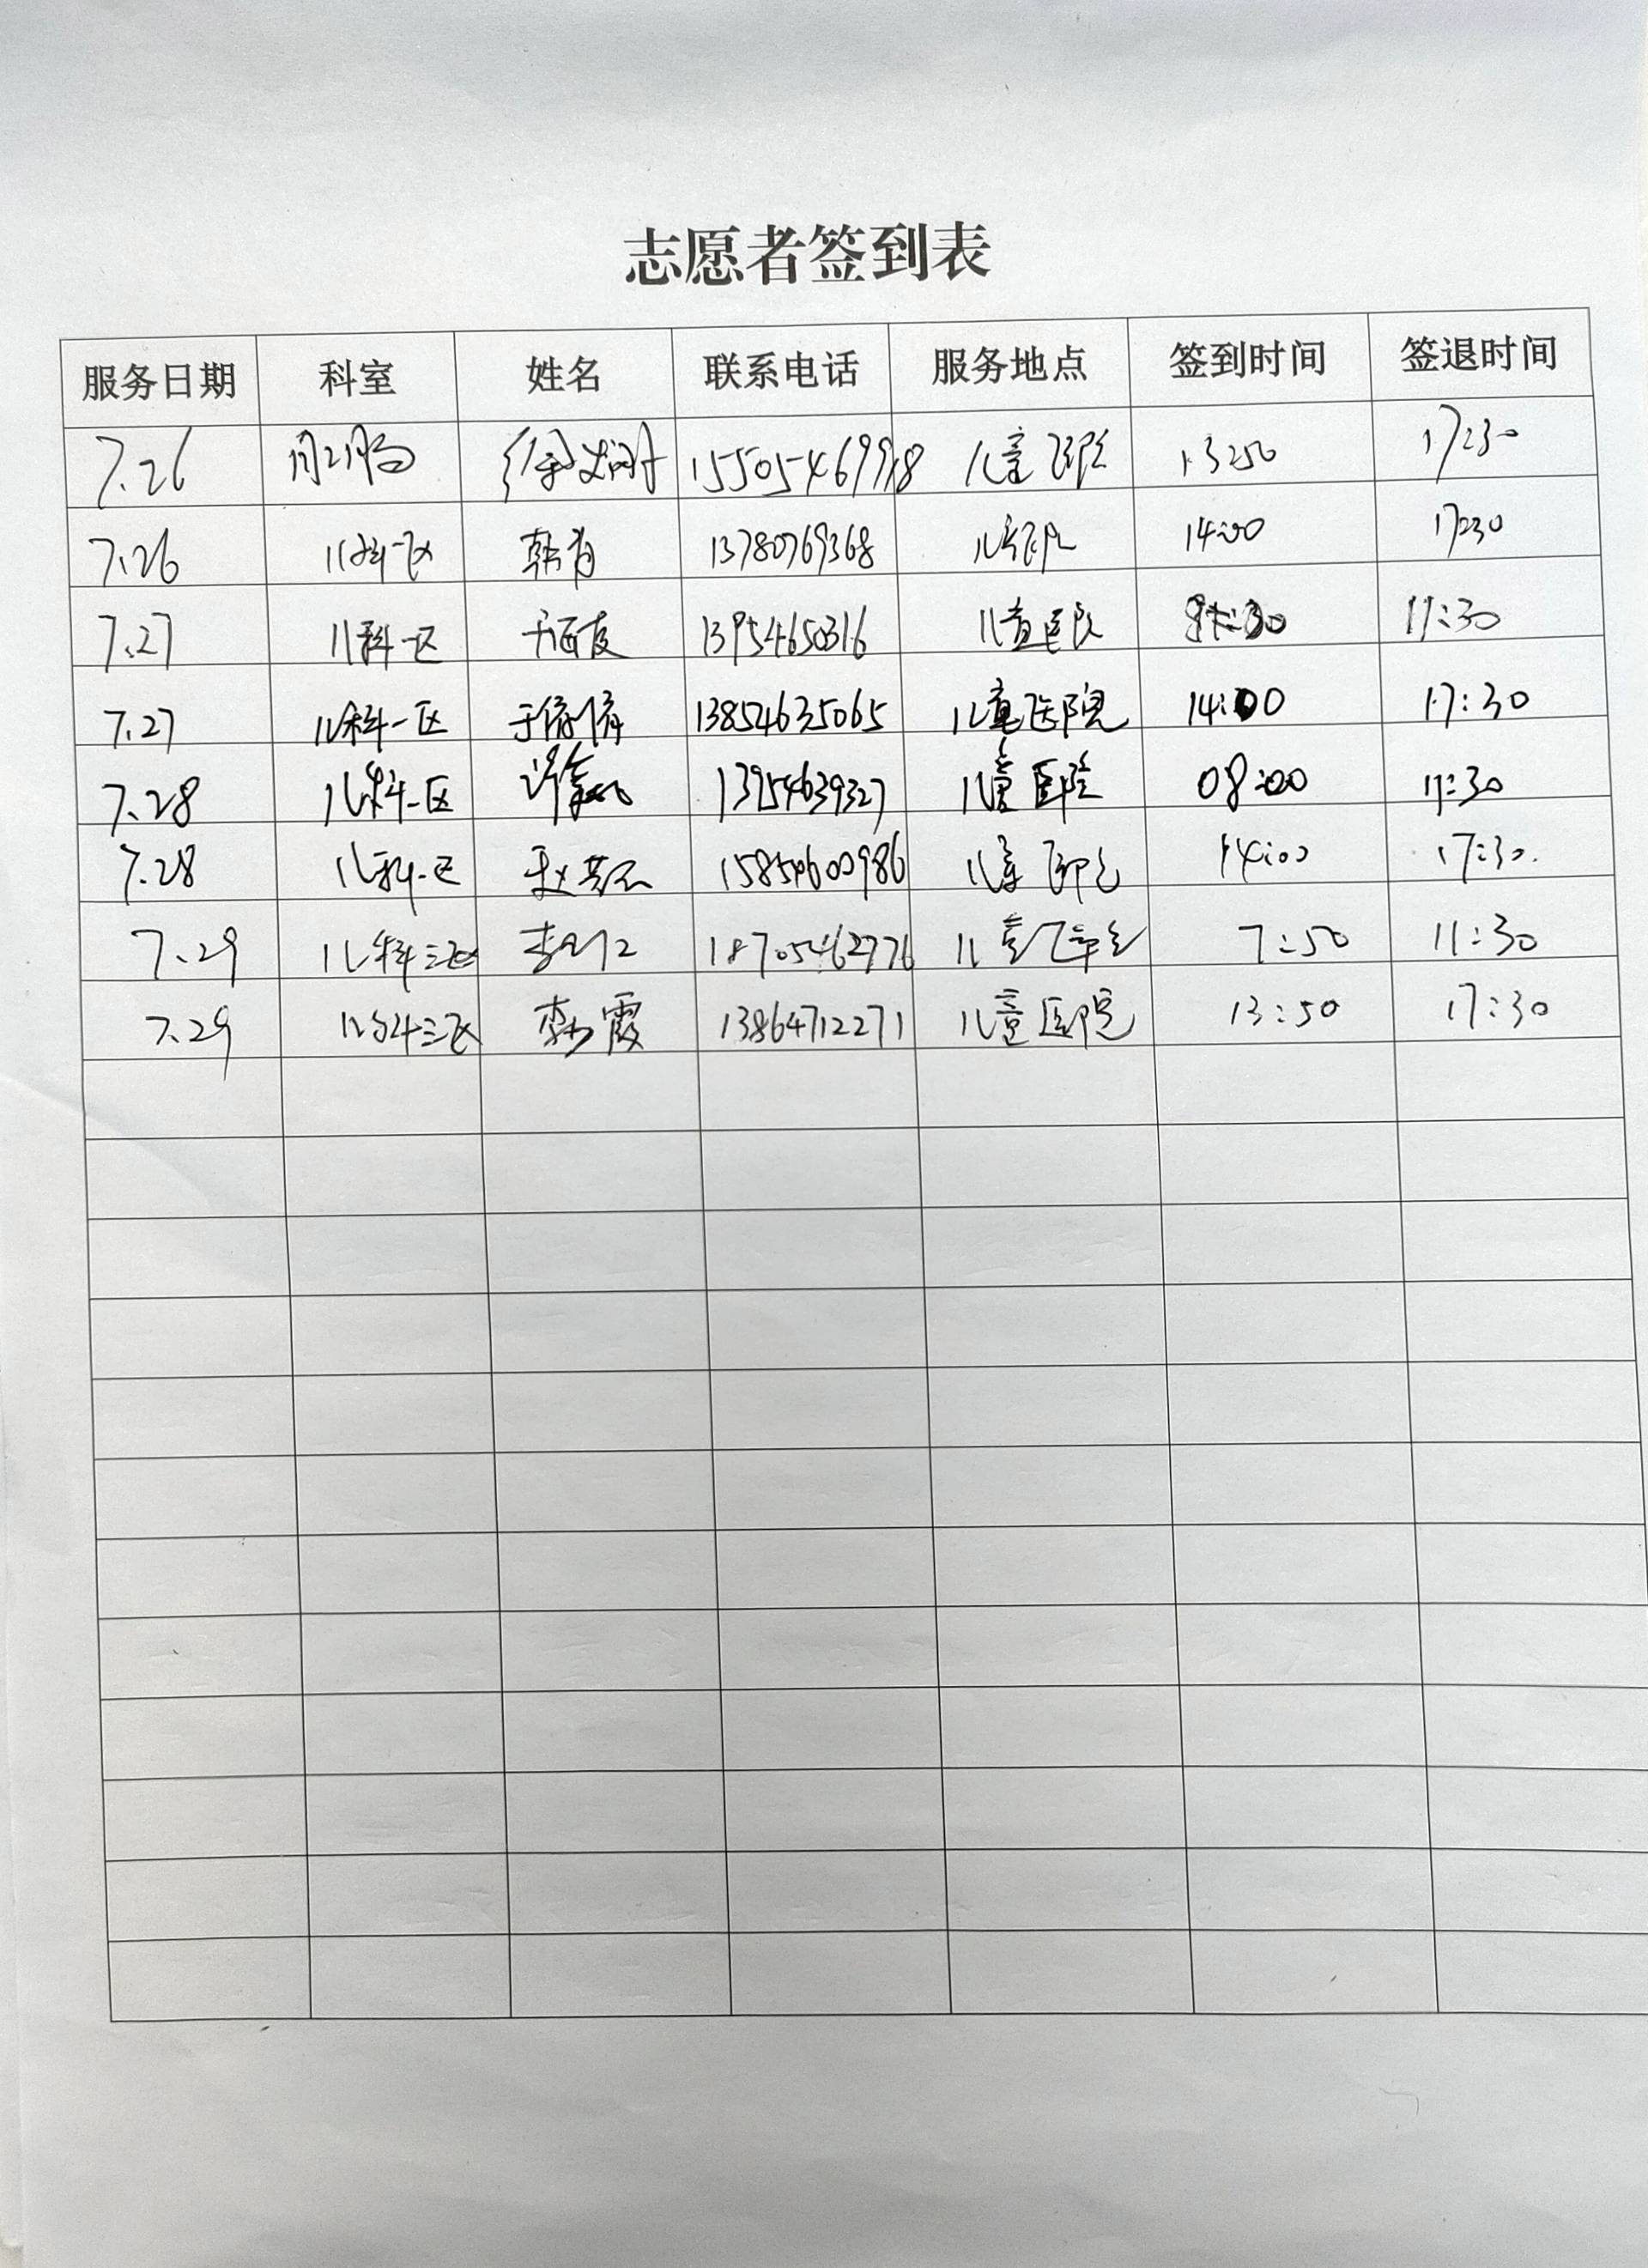 志愿者签到表
服务日期 科室 姓名 联系电话 服务地点 签到时间 签退时间
7.26 15505469998 儿童医院 13:50 17:30
7.26 儿科一区 韩肖 13780769368 儿童医院 14:00 17:30
7.27 儿科一区 13954650316 儿童医院 11:30
7.27 儿科一区 于倩倩 13854635065 儿童医院 14:00 17:30
7.28 儿科一区 13954639327 儿童医院 08:00 11:30
7.28 儿科一区 15854600986 儿童医院 14:00 17:30
7.29 儿科三区 18705462776 儿童医院 7:50 11:30
7.29 儿科三区 霞 13864712271 儿童医院 13:50 17:30